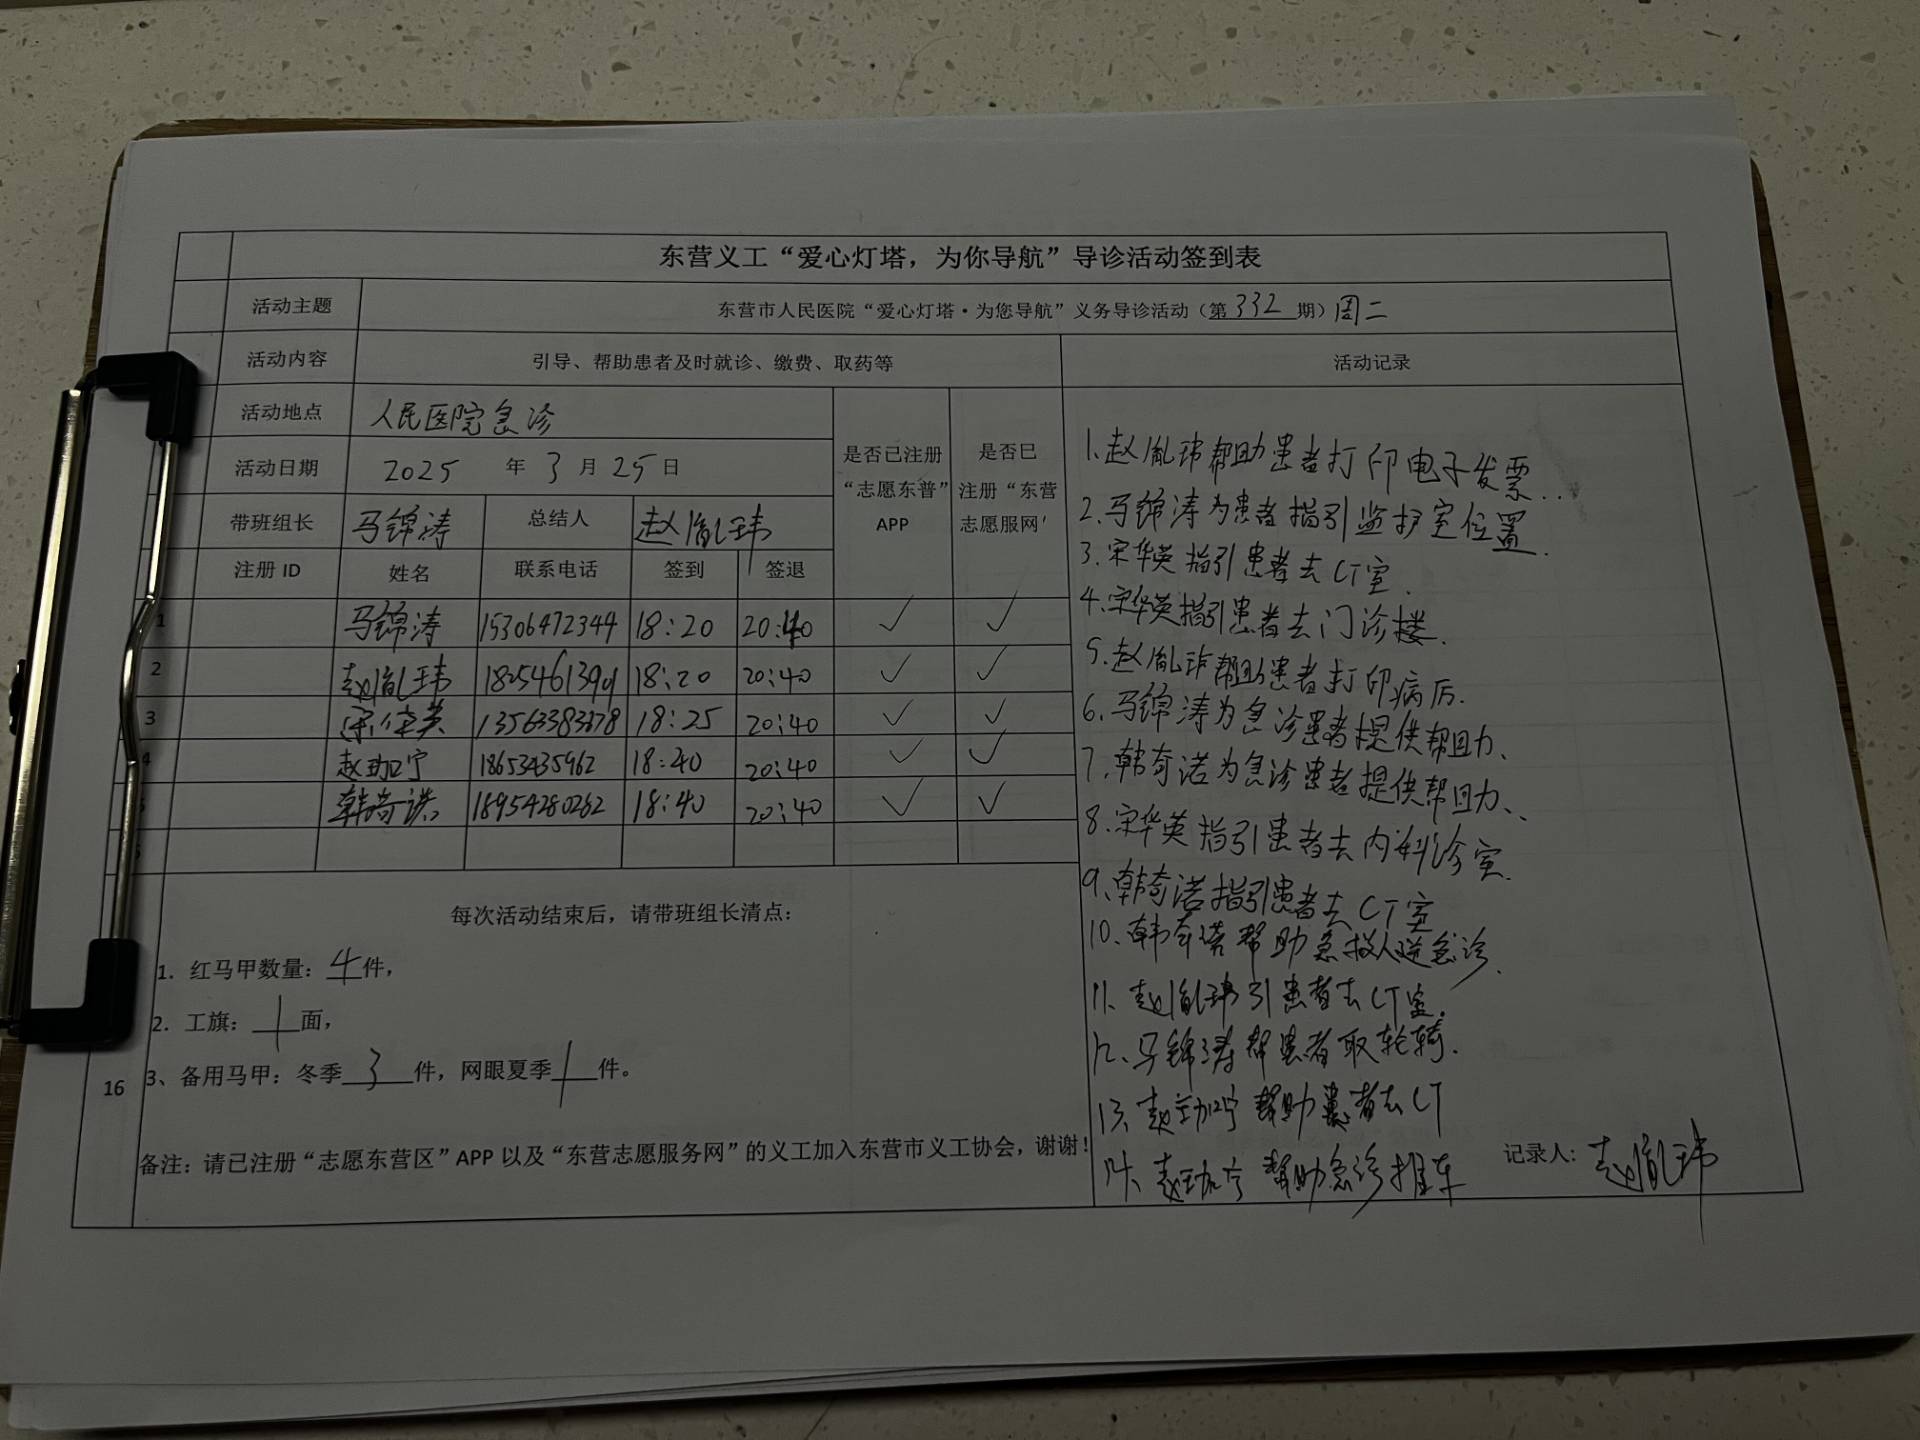 东营义工“爱心灯塔，为你导航”导诊活动签到表
活动主题 东营市人民医院“爱心灯塔·为您导航”义务导诊活动（第332期）周二
活动内容 引导、帮助患者及时就诊、缴费、取药等 活动记录
活动地点 人民医院急诊
活动日期 2025 年 3 月 25 日
带班组长 马锦涛 总结人 赵胤玮
是否已注册
“志愿东普”
APP
是否已
注册“东营
志愿服网'
注册 ID 姓名 联系电话 签到 签退
1 马锦涛 15306472344 18:20 20:40 ✓ ✓
2 赵胤玮 18254613901 18:20 20:40 ✓ ✓
3 宋华英 13563383378 18:25 20:40 ✓ ✓
4 赵珈宁 18653435962 18:40 20:40 ✓ ✓
5 韩奇诺 18954280262 18:40 20:40 ✓ ✓
每次活动结束后，请带班组长清点：
1. 红马甲数量：4件，
2. 工旗：1面，
16 3、备用马甲：冬季3件，网眼夏季1件。
备注：请已注册“志愿东营区”APP 以及“东营志愿服务网”的义工加入东营市义工协会，谢谢！
1.赵胤玮帮助患者打印电子发票..
2.马锦涛为患者指引监护室位置.
3.宋华英指引患者去CT室.
4.宋华英指引患者去门诊楼.
5.赵胤玮帮助患者打印病历.
6.马锦涛为急诊患者提供帮助、
7.韩奇诺为急诊患者提供帮助、.
8.宋华英指引患者去内科诊室.
9.韩奇诺指引患者去CT室
10、韩奇诺帮助急救人送急诊.
11、赵胤玮引患者去CT室.
12、马锦涛帮患者取轮椅.
13、赵珈宁帮助患者去CT
14、赵珈宁帮助急诊推车
记录人：赵胤玮